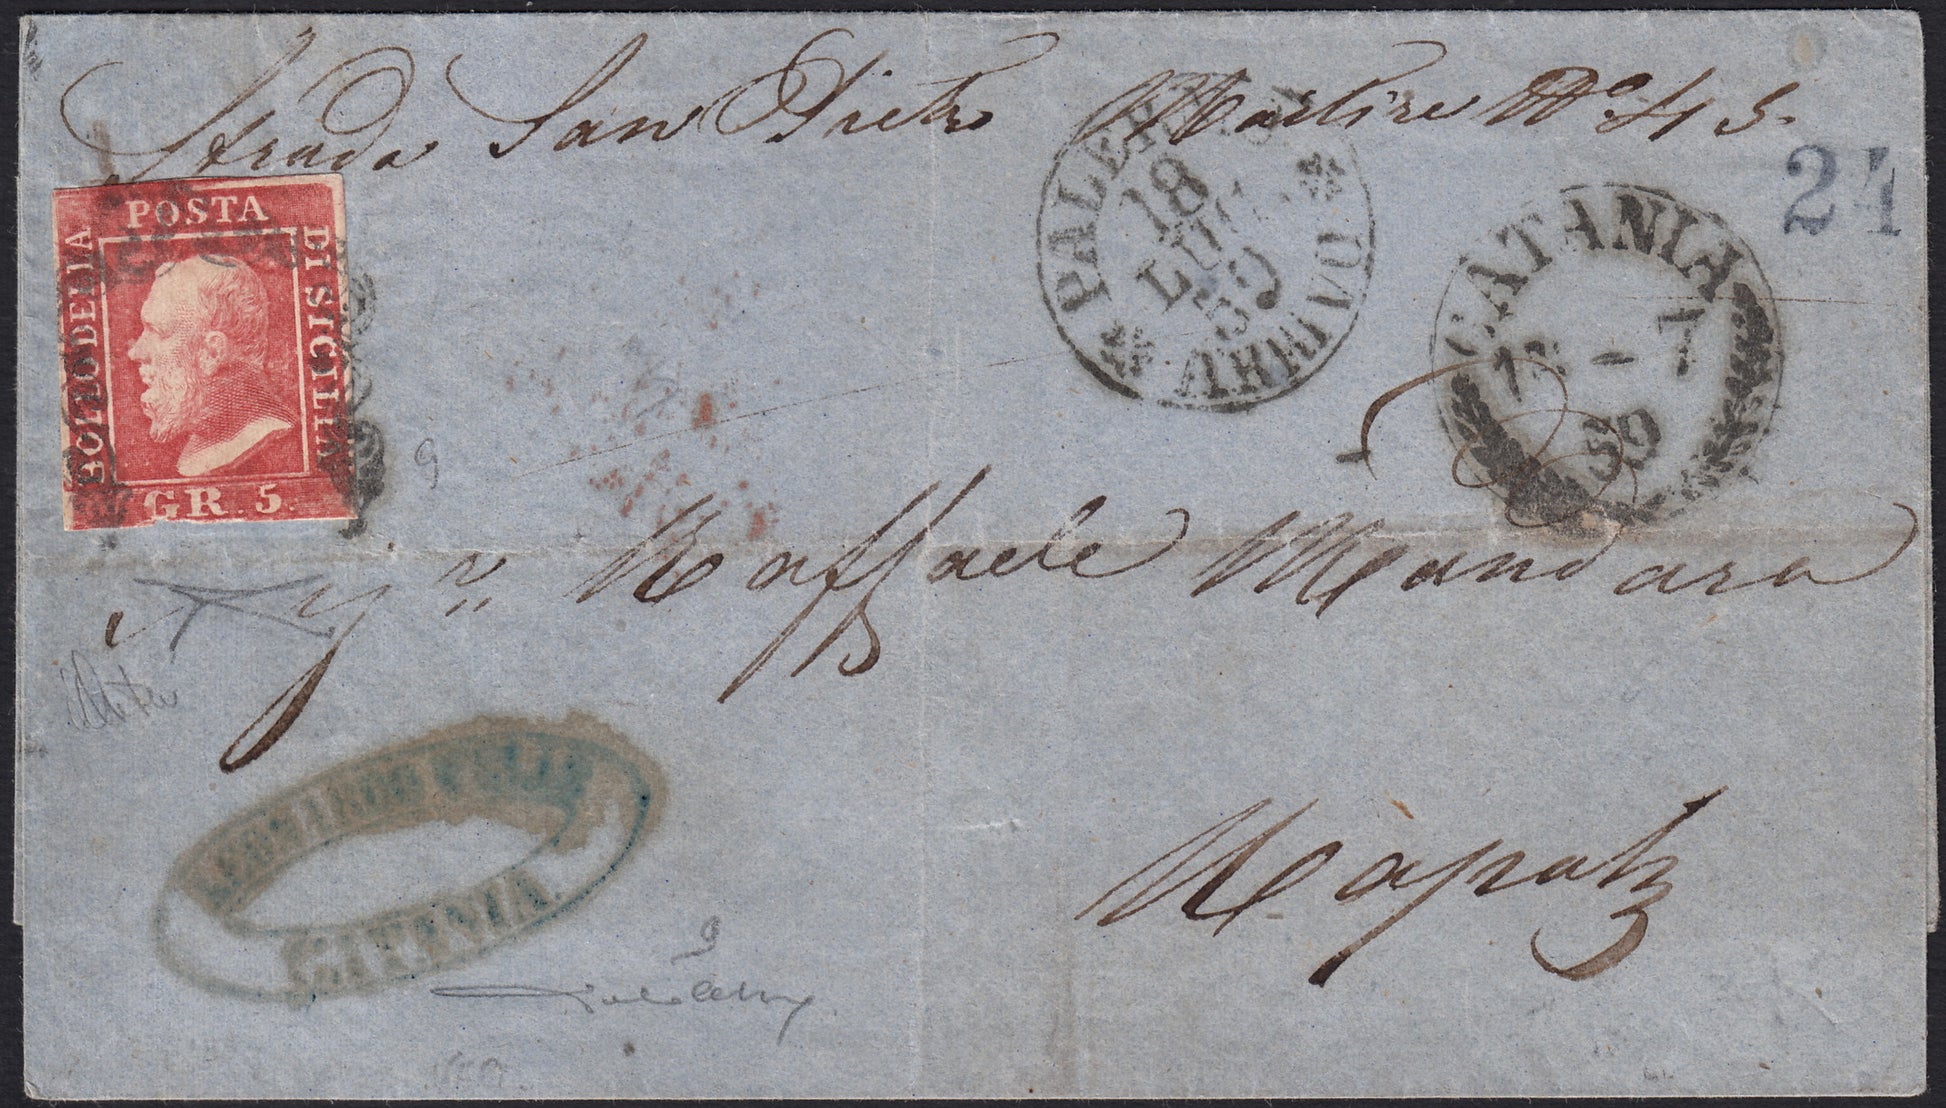 Strada San Pietro Martire No. 45.
24
BOLLO DELLA
POSTA
DI SICILIA
GR. 5.
PALERMO
18
LUG.
59
ARRIVO
CATANIA
7
59
Sigr. Raffaele Mandara
CATANIA.
Napoli
9
9